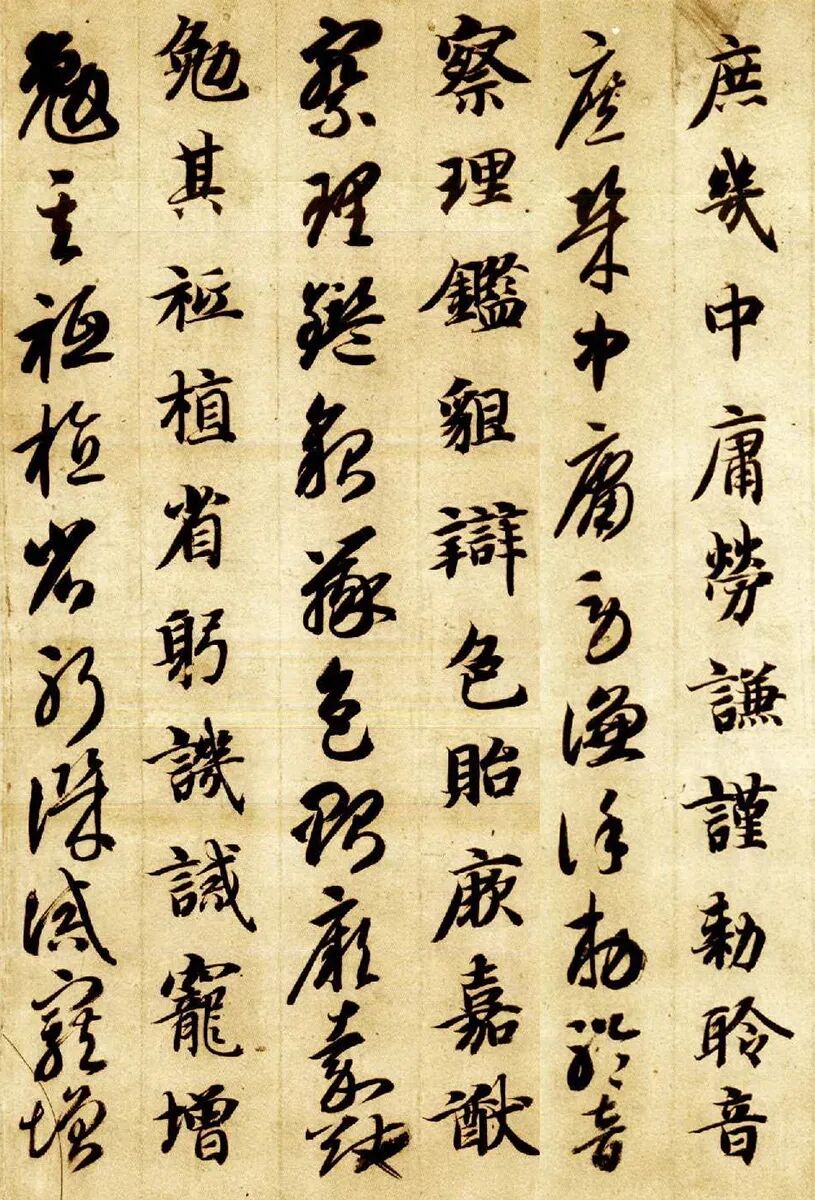 庶幾中庸勞謙謹勅聆音
庶幾中庸勞謙謹勅聆音
察理鑑貌辯色貽厥嘉猷
察理鑑貌辯色貽厥嘉猷
勉其祗植省躬譏誡寵增
勉其祗植省躬譏誡寵增